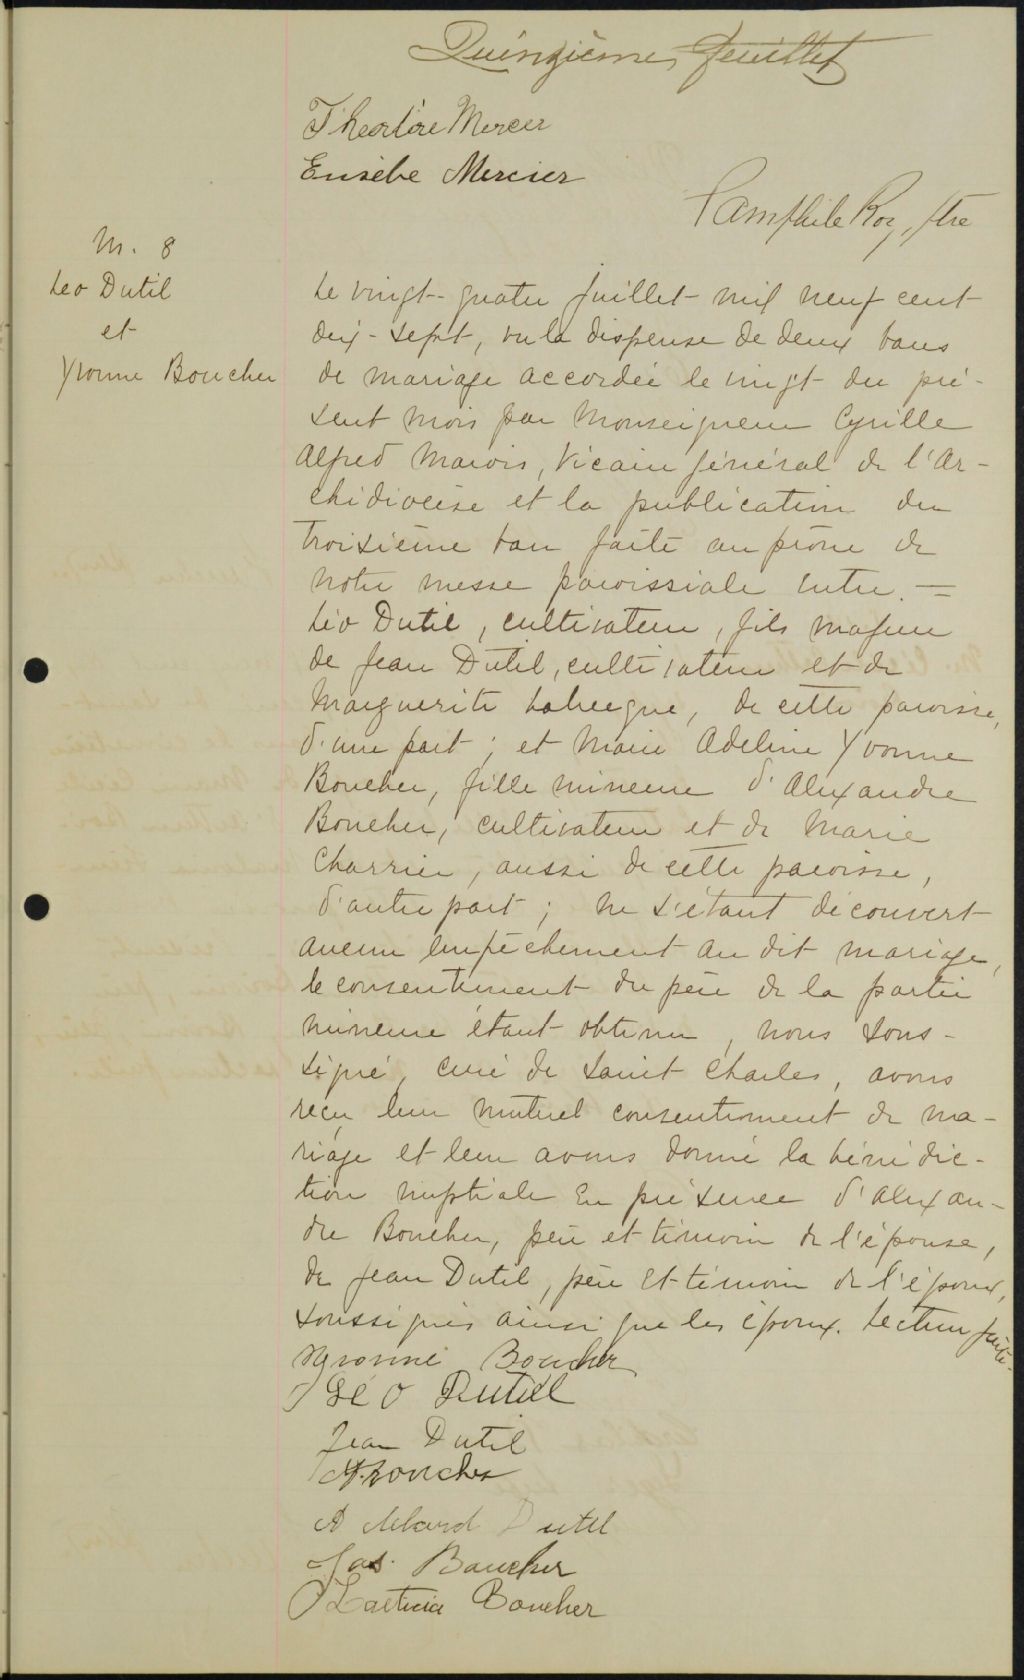 Quinzième feuillet
Théodore Mercier
Eusèbe Mercier
Pamphile Roy, ptre
M. 8
Léo Dutil
et
Yvonne Boucher
Le vingt-quatre juillet mil neuf cent
dix-sept, vu la dispense de deux bans
de mariage accordée le vingt du pré-
sent mois par Monseigneur Cyrille
Alfred Marois, Vicaire général de l'Ar-
chidiocèse et la publication du
troisième ban faite au prône de
notre messe paroissiale entre. =
Léo Dutil, cultivateur, fils majeur
de Jean Dutil, cultivateur et de
Marguerite Labrecque, de cette paroisse,
d'une part; et Marie Adeline Yvonne
Boucher, fille mineure d'Alexandre
Boucher, cultivateur et de Marie
Charrier, aussi de cette paroisse,
d'autre part; ne s'étant découvert
aucun empêchement au dit mariage,
le consentement du père de la partie
mineure étant obtenu, nous sous-
signé, curé de Saint Charles, avons
reçu leur mutuel consentement de ma-
riage et leur avons donné la bénédic-
tion nuptiale en présence d'Alexan-
dre Boucher, père et témoin de l'épouse,
de Jean Dutil, père et témoin de l'époux,
soussignés ainsi que les époux. Lecture faite.
Yvonne Boucher
Léo Dutil
Jean Dutil
A. Boucher
Dutil
Jos. Boucher
Laeticia Boucher